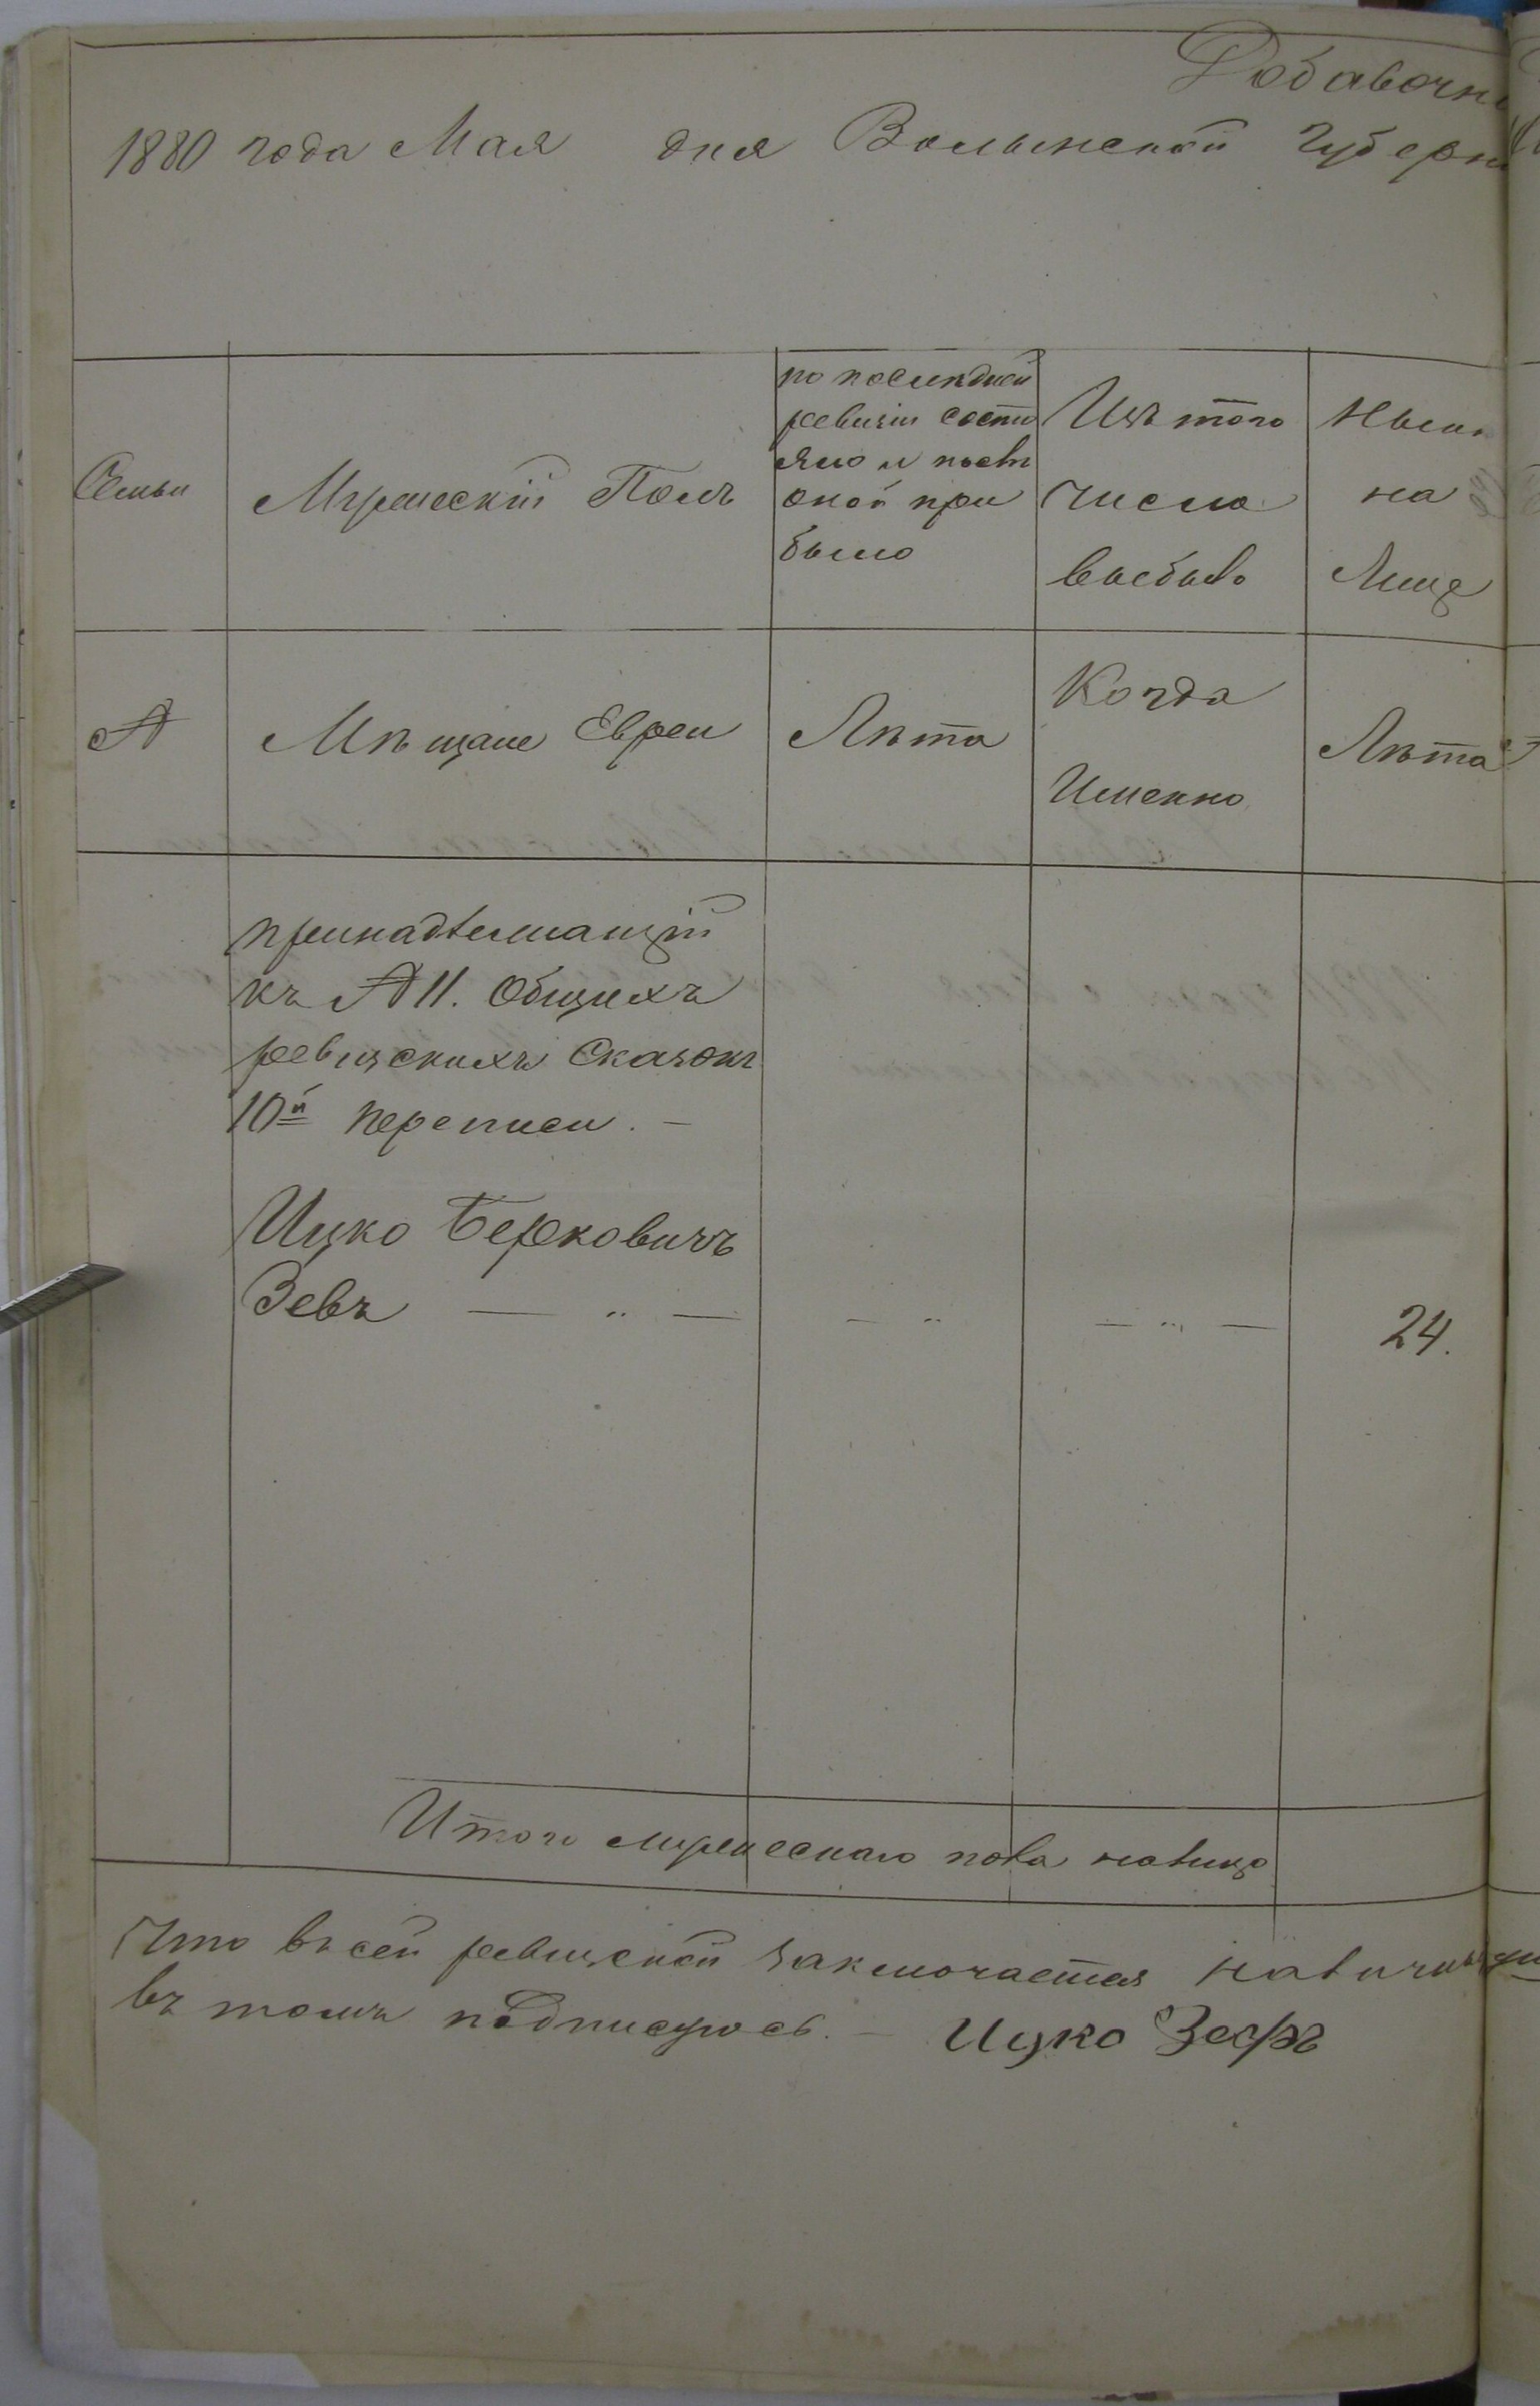 Добавочн
1880 года Мая дня Волынской Губерн
Семьи
Мужескій Полъ
по послѣдней
ревизіи состо
яло и послѣ
оной при
было
Изъ того
числа
выбыло
Нын
на
Лицо
№
Мѣщане Евреи
Лѣта
Когда
Именно
Лѣта
принадлежащій
къ № 11. Общихъ
ревизскихъ Сказокъ
10й переписи. —
Ицко Берковичъ
Зевъ — „ — — „ — „ — 24.
Итого мужескаго пола налицо
Что въ сей ревизской заключается наличны
въ томъ подписуюсь. — Ицко Зефъ